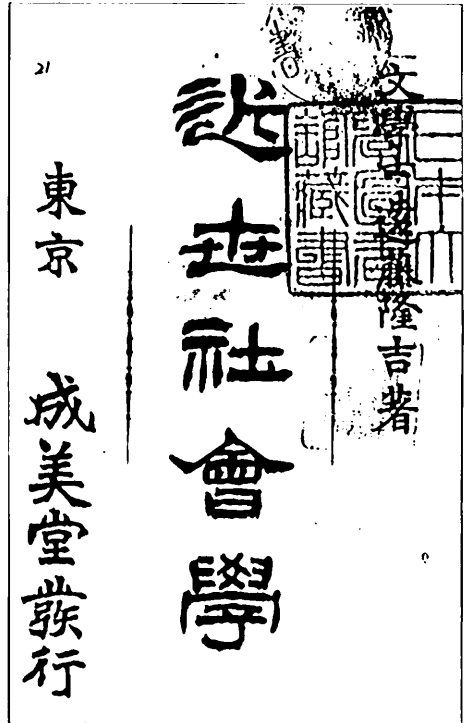 文學士遠藤隆吉著
近世社會學
東京 成美堂發行
21
館藏書